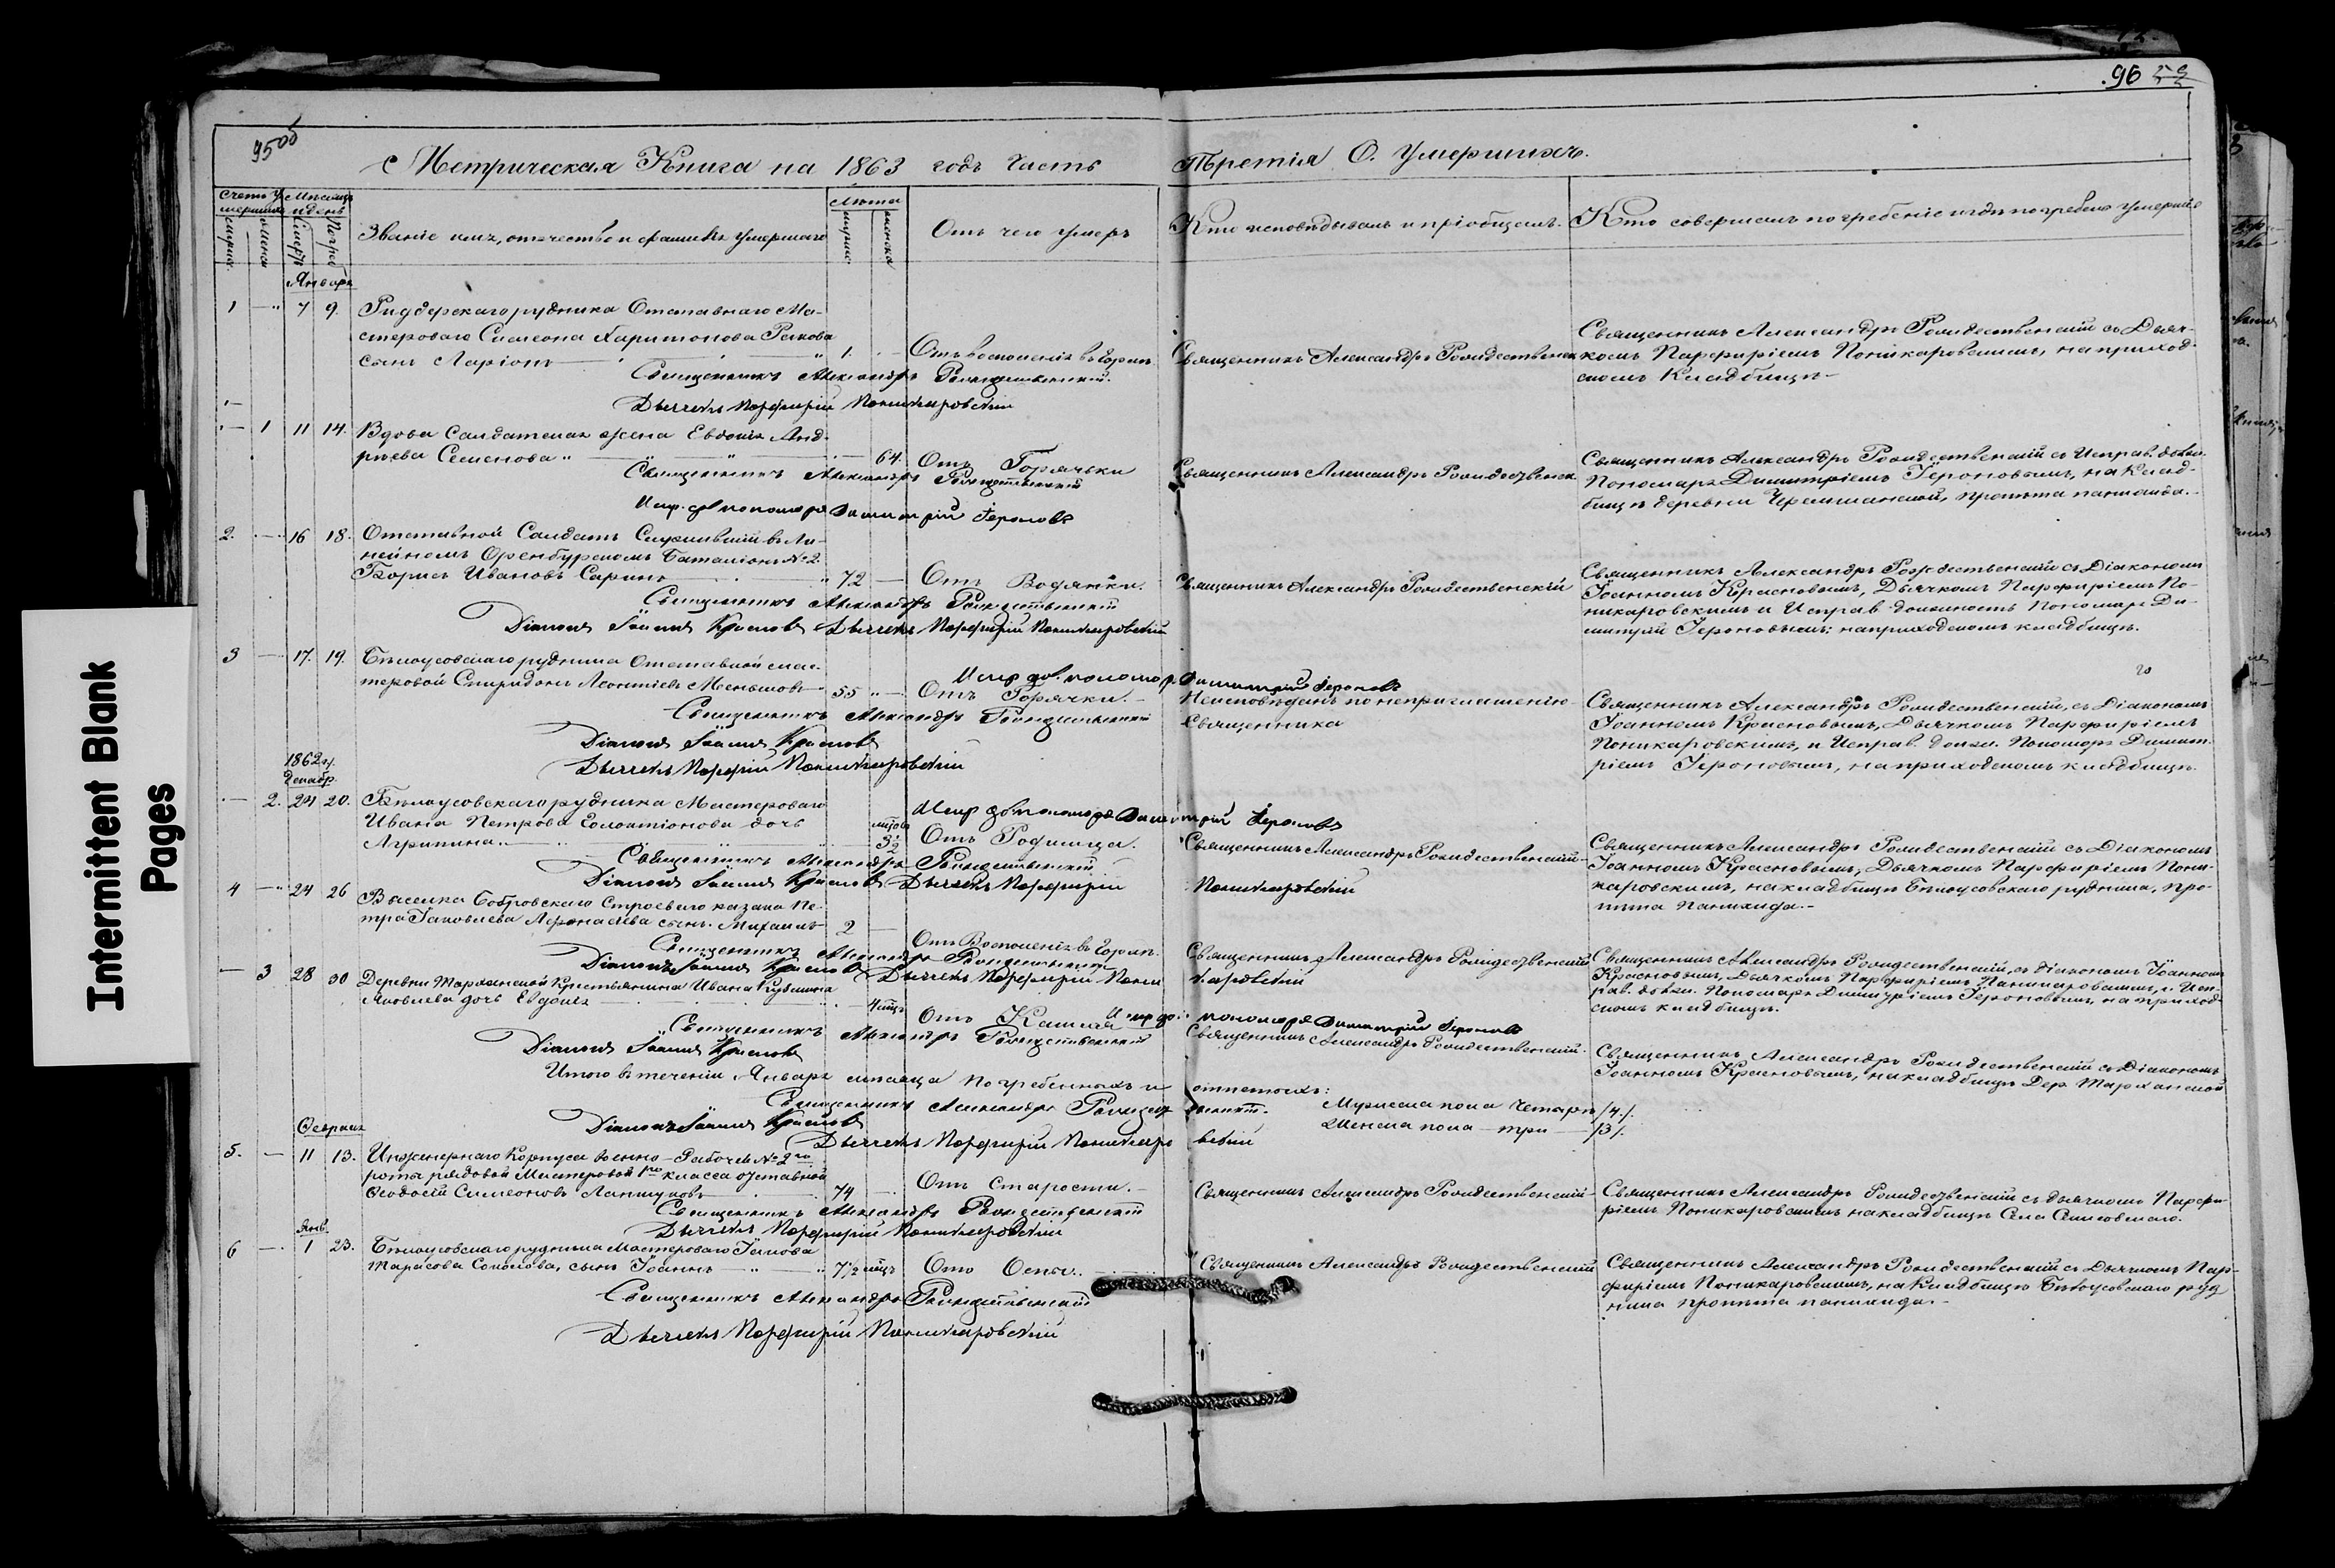 95 об
96
Метрическая Книга на 1863 годъ Часть Третія О. Умершихъ.
Счетъ умершихъ
Мѣсяцъ и день
Лѣта
мужес.
женска
Званіе имя, отчество и фамилія умершаго
Отъ чего умеръ
Кто исповѣдывалъ и пріобщалъ.
Кто совершалъ погребеніе и гдѣ погребены умершіе
Январь
1 — 7 9.
Риддерскаго рудника Отставнаго Ма-
стероваго Симеона Харитонова
сынъ Ларіонъ
1.
Отъ воспаленія въ горлѣ
Священникъ Александръ Рождественск
Священникъ Александръ Рождественскій съ Дьяч-
комъ Парфиріемъ Поникаровскимъ, на приход-
скомъ Кладбищѣ
Священникъ Александръ Рождественскій.
Дьячекъ Порфирій Поникаровскій
— 1 11 14.
Вдова Солдатская жена Евдокія Анд-
рѣева Семенова
64.
Отъ Горячьки
Священникъ Александръ Рождественск
Священникъ Александръ Рождественскій съ Исправ. долж.
Пономаря Димитріемъ Іероновымъ, на Клад-
бищѣ деревни Черемшанской, пропѣта панихида.
Священникъ Александръ Рождественскій
Испр. дол пономаря Димитрій Іероновъ
2. — 16 18.
Отставной Солдатъ Служившій въ Ли-
нейномъ Оренбургскомъ Баталіонѣ №2
Борисъ Ивановъ Саринъ
72 —
Отъ Водянки.
Священникъ Александръ Рождественскій
Священникъ Александръ Рождественскій съ Діакономъ
Іоанномъ Красновымъ, Дьячкомъ Парфиріемъ По-
никаровскимъ и Исправ. должность Пономаря Ди-
митрій Іероновымъ: на приходскомъ кладбищѣ.
Священникъ Александръ Рождественскій
Діаконъ Іоаннъ Красновъ Дьячекъ Порфирій Поникаровскій
Испр дол. пономар. Димитрій Іероновъ
3 — 17. 19.
Бѣлоусовскаго рудника Отставной мас-
теровой Спиридонъ Леонтіевъ Меньшовъ
55
Отъ Горячки.
Неисповѣданъ по неприглашенію
Священника
Священникъ Александръ Рождественскій, съ Діакономъ
Іоанномъ Красновымъ, Дьячкомъ Парфиріемъ
Поникаровскимъ, и Исправ. должн. Пономаря Димит-
ріемъ Іероновымъ, на приходскомъ кладбищѣ.
Священникъ Александръ Рождественскій
Діаконъ Іоаннъ Красновъ
Дьячекъ Порфирій Поникаровскій
Испр дол пономаря Димитрій Іероновъ
1862 г.
Декабр.
— 2. 24 20.
Бѣлоусовскаго рудника Мастероваго
Ивана Петрова Евлактіонова дочь
Агрипина
Отъ Родимца.
Священникъ Александръ Рождественскій
Священникъ Александръ Рождественскій съ Діакономъ
Іоанномъ Красновымъ, Дьячкомъ Парфиріемъ Пони-
каровскимъ, на кладбищѣ Бѣлоусовскаго рудника, про-
пѣта панихида.
Священникъ Александръ Рождественскій
Діаконъ Іоаннъ Красновъ Дьячекъ Порфирій Поникаровскій
4 — 24 26
Выселка Бобровскаго Строеваго казака Пе-
тра Іаковлева Афонасіева сынъ Михаилъ
2
Отъ Воспаленія въ Горлѣ.
Священникъ Александръ Рождественскій
Священникъ Александръ Рождественскій, съ Діакономъ Іоанномъ
Красновымъ, Дьячкомъ Парфиріемъ Поникаровскимъ, и Исп-
рав. долж. Пономаря Димитріемъ Іероновымъ, на приход-
скомъ кладбищѣ.
Священникъ Александръ Рождественскій
Діаконъ Іоаннъ Красновъ Дьячекъ Порфирій Поникаровскій
Испр до. пономаря Димитрій Іероновъ
— 3 28 30
Деревни Тарханской Крестьянина Ивана Кузьмина
Яковлева дочь Евдокія
Отъ Кашля
Священникъ Александръ Рождественскій.
Священникъ Александръ Рождественскій съ Діакономъ
Іоанномъ Красновымъ, на кладбищѣ Дер. Тарханской
Священникъ Александръ Рождественскій
Діаконъ Іоаннъ Красновъ
Итого въ теченіи Января мѣсяца погребенныхъ и отпетыхъ:
Мужеска пола Четыре /4/.
Женска пола — три — /3/.
Священникъ Александръ Рождественскій.
Діаконъ Іоаннъ Красновъ
Дьячекъ Порфирій Поникаровскій
Февраля
5. — 11 13.
Инженернаго Корпуса военно-Рабочей №2го
роты рядовой Мастеровой 1го класса отставной
Ѳеодосій Симеоновъ Лапшуковъ
74
Отъ Старости.
Священникъ Александръ Рождественскій
Священникъ Александръ Рождественскій съ дьячкомъ Парфи-
ріемъ Поникаровскимъ на кладбищѣ Села Секисовскаго.
Священникъ Александръ Рождественскій
Дьячекъ Порфирій Поникаровскій
Янв.
6 — 1 23.
Бѣлоусовскаго рудника Мастероваго Іакова
Тарасова Соколова, сынъ Іоаннъ
7½ мцъ
Отъ Оспы.
Священникъ Александръ Рождественскій
Священникъ Александръ Рождественскій съ Дьячкомъ Пар-
фиріемъ Поникаровскимъ, на Кладбищѣ Бѣлоусовскаго руд
ника пропѣта панихида.
Священникъ Александръ Рождественскій
Дьячекъ Порфирій Поникаровскій
Intermittent Blank
Pages